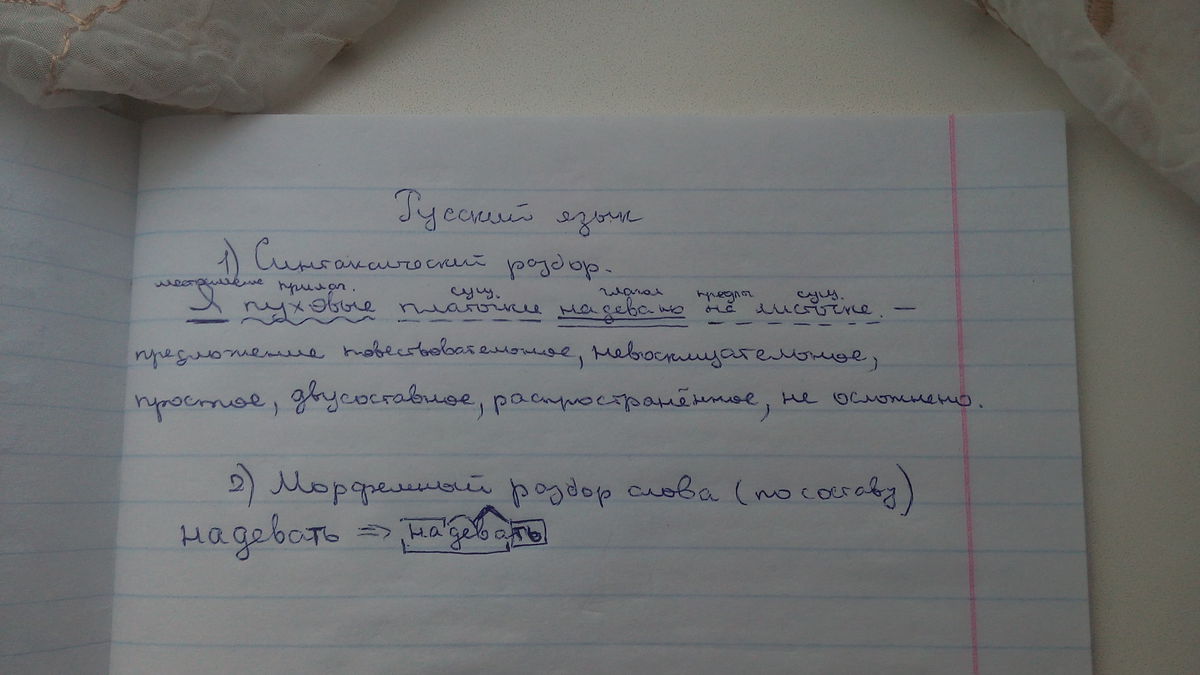 Русский язык
1) Синтаксический разбор.
местоимение прилаг. сущ. глагол предлог сущ.
Я пуховые платочки надеваю на листочке. —
предложение повествовательное, невосклицательное,
простое, двусоставное, распространённое, не осложнено.
2) Морфемный разбор слова (по составу)
надевать => надевать